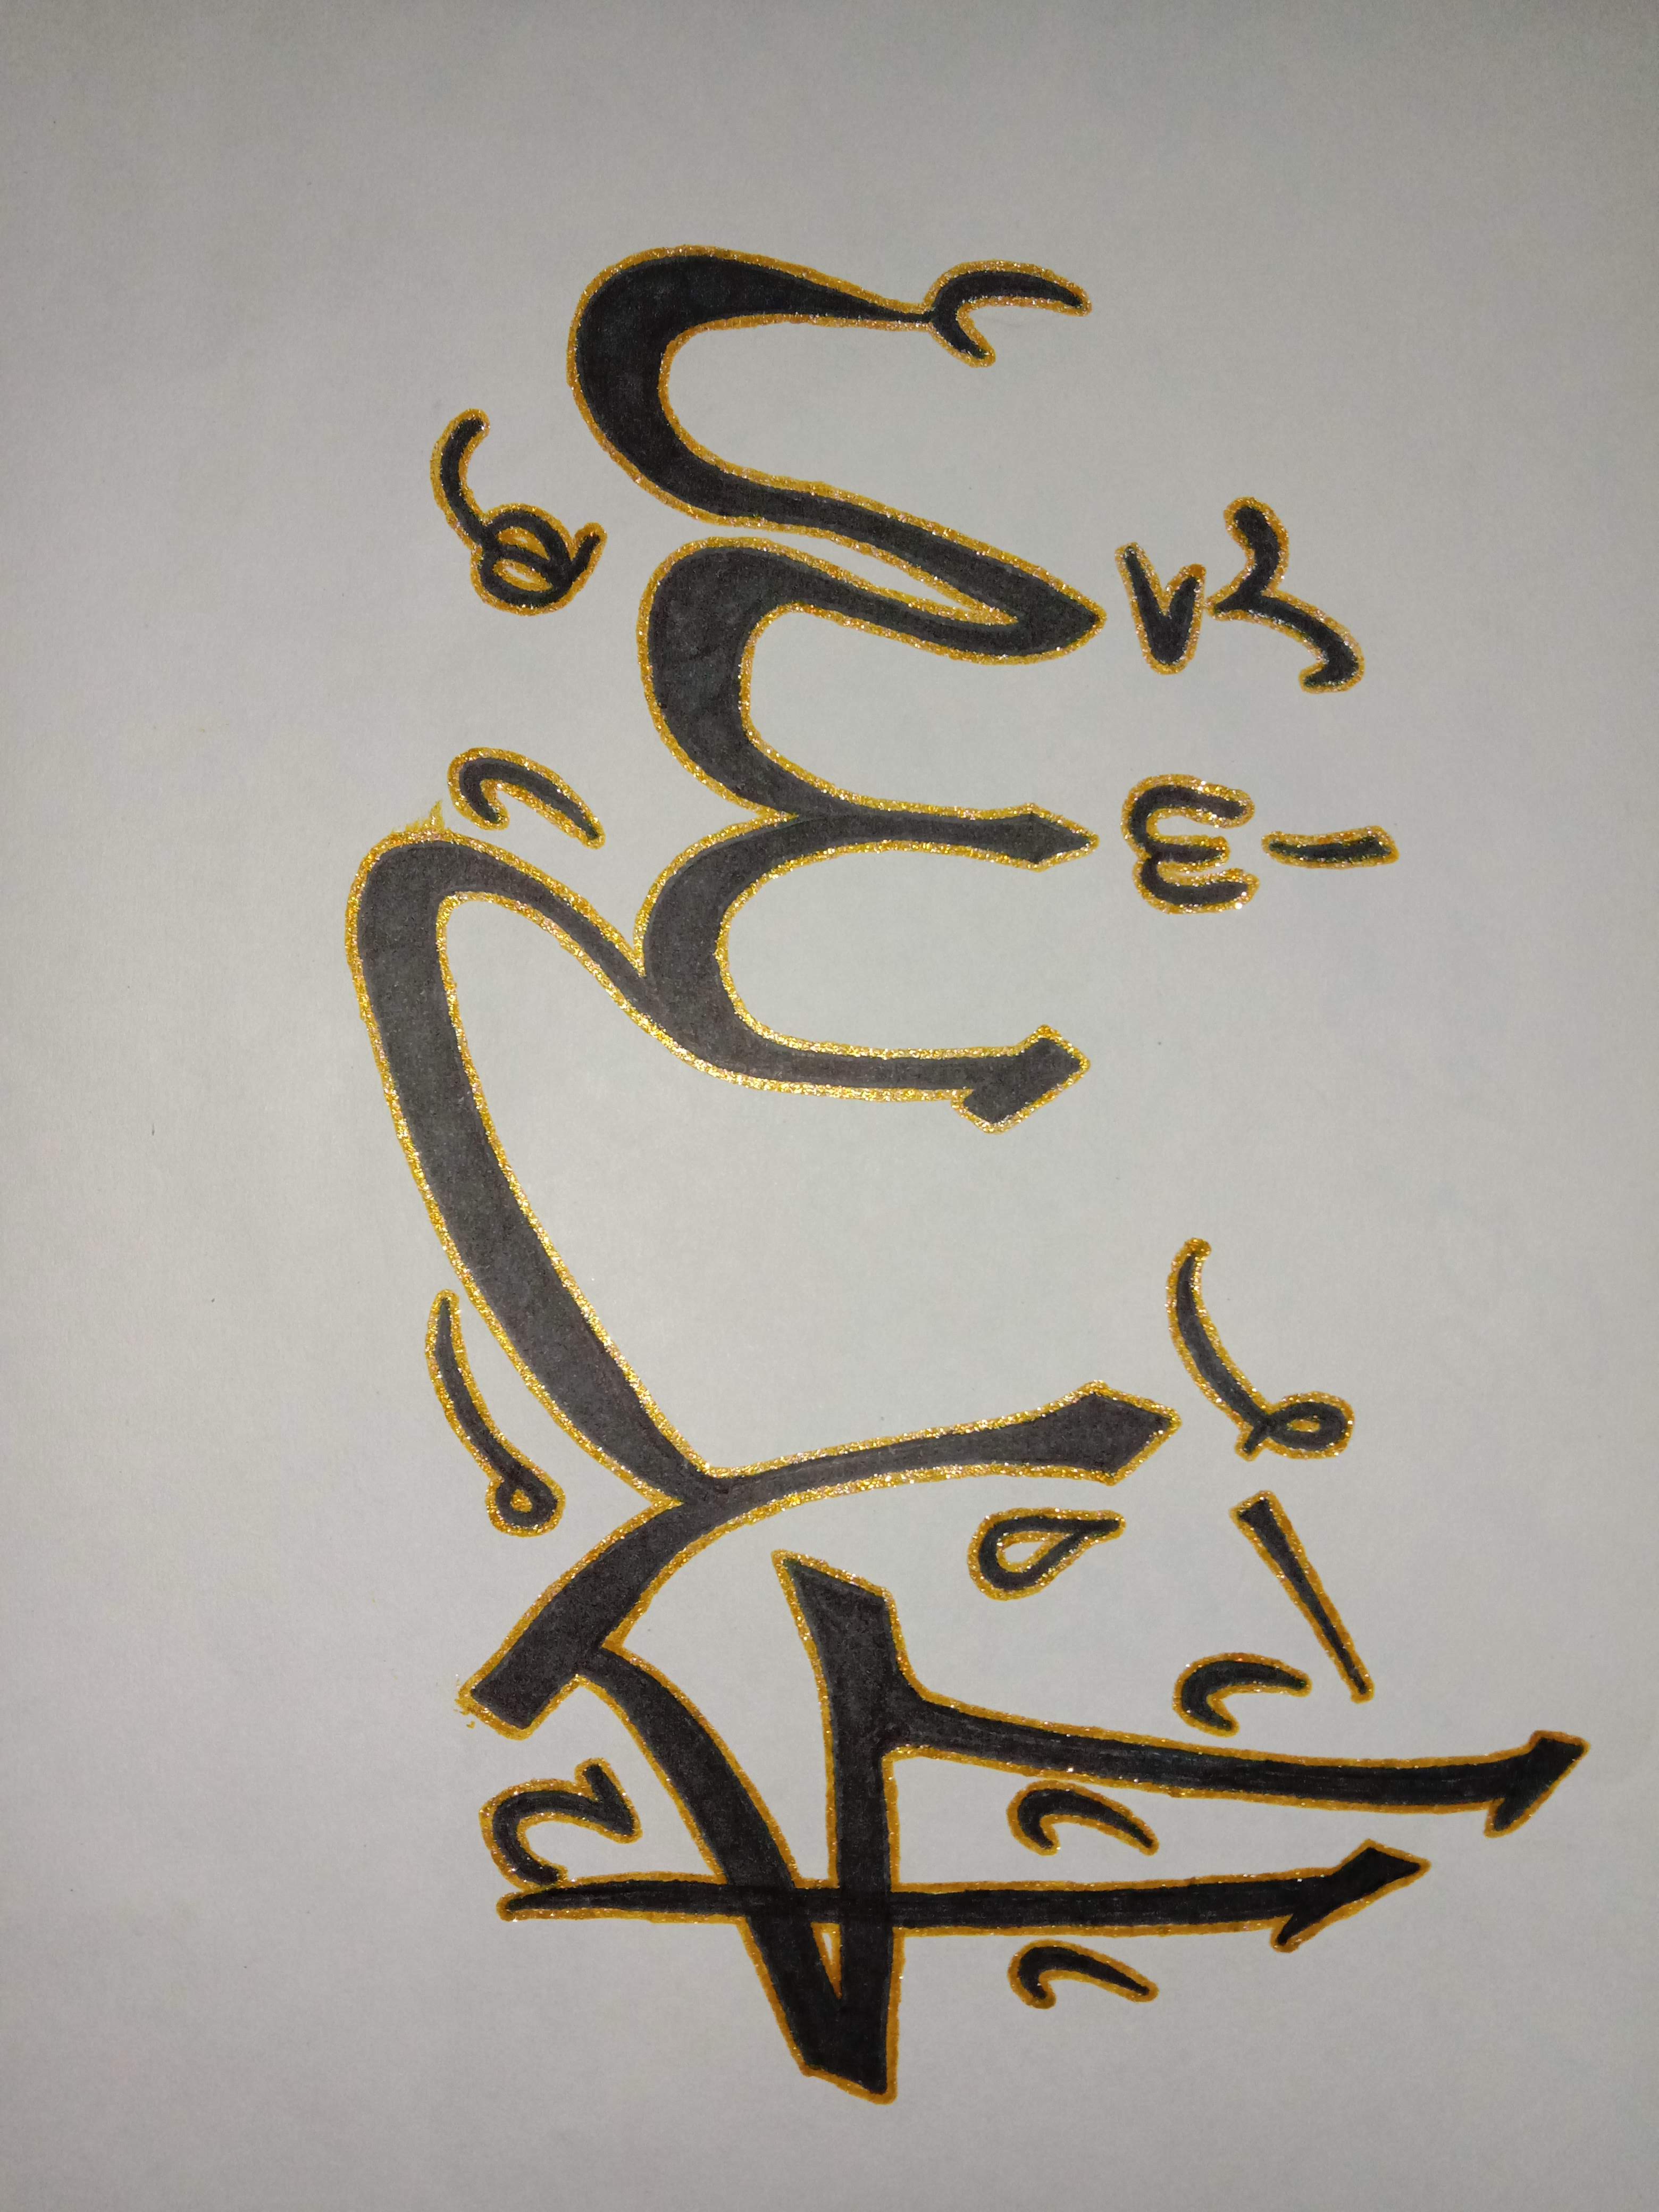 الحَمْدُ لِلّٰه